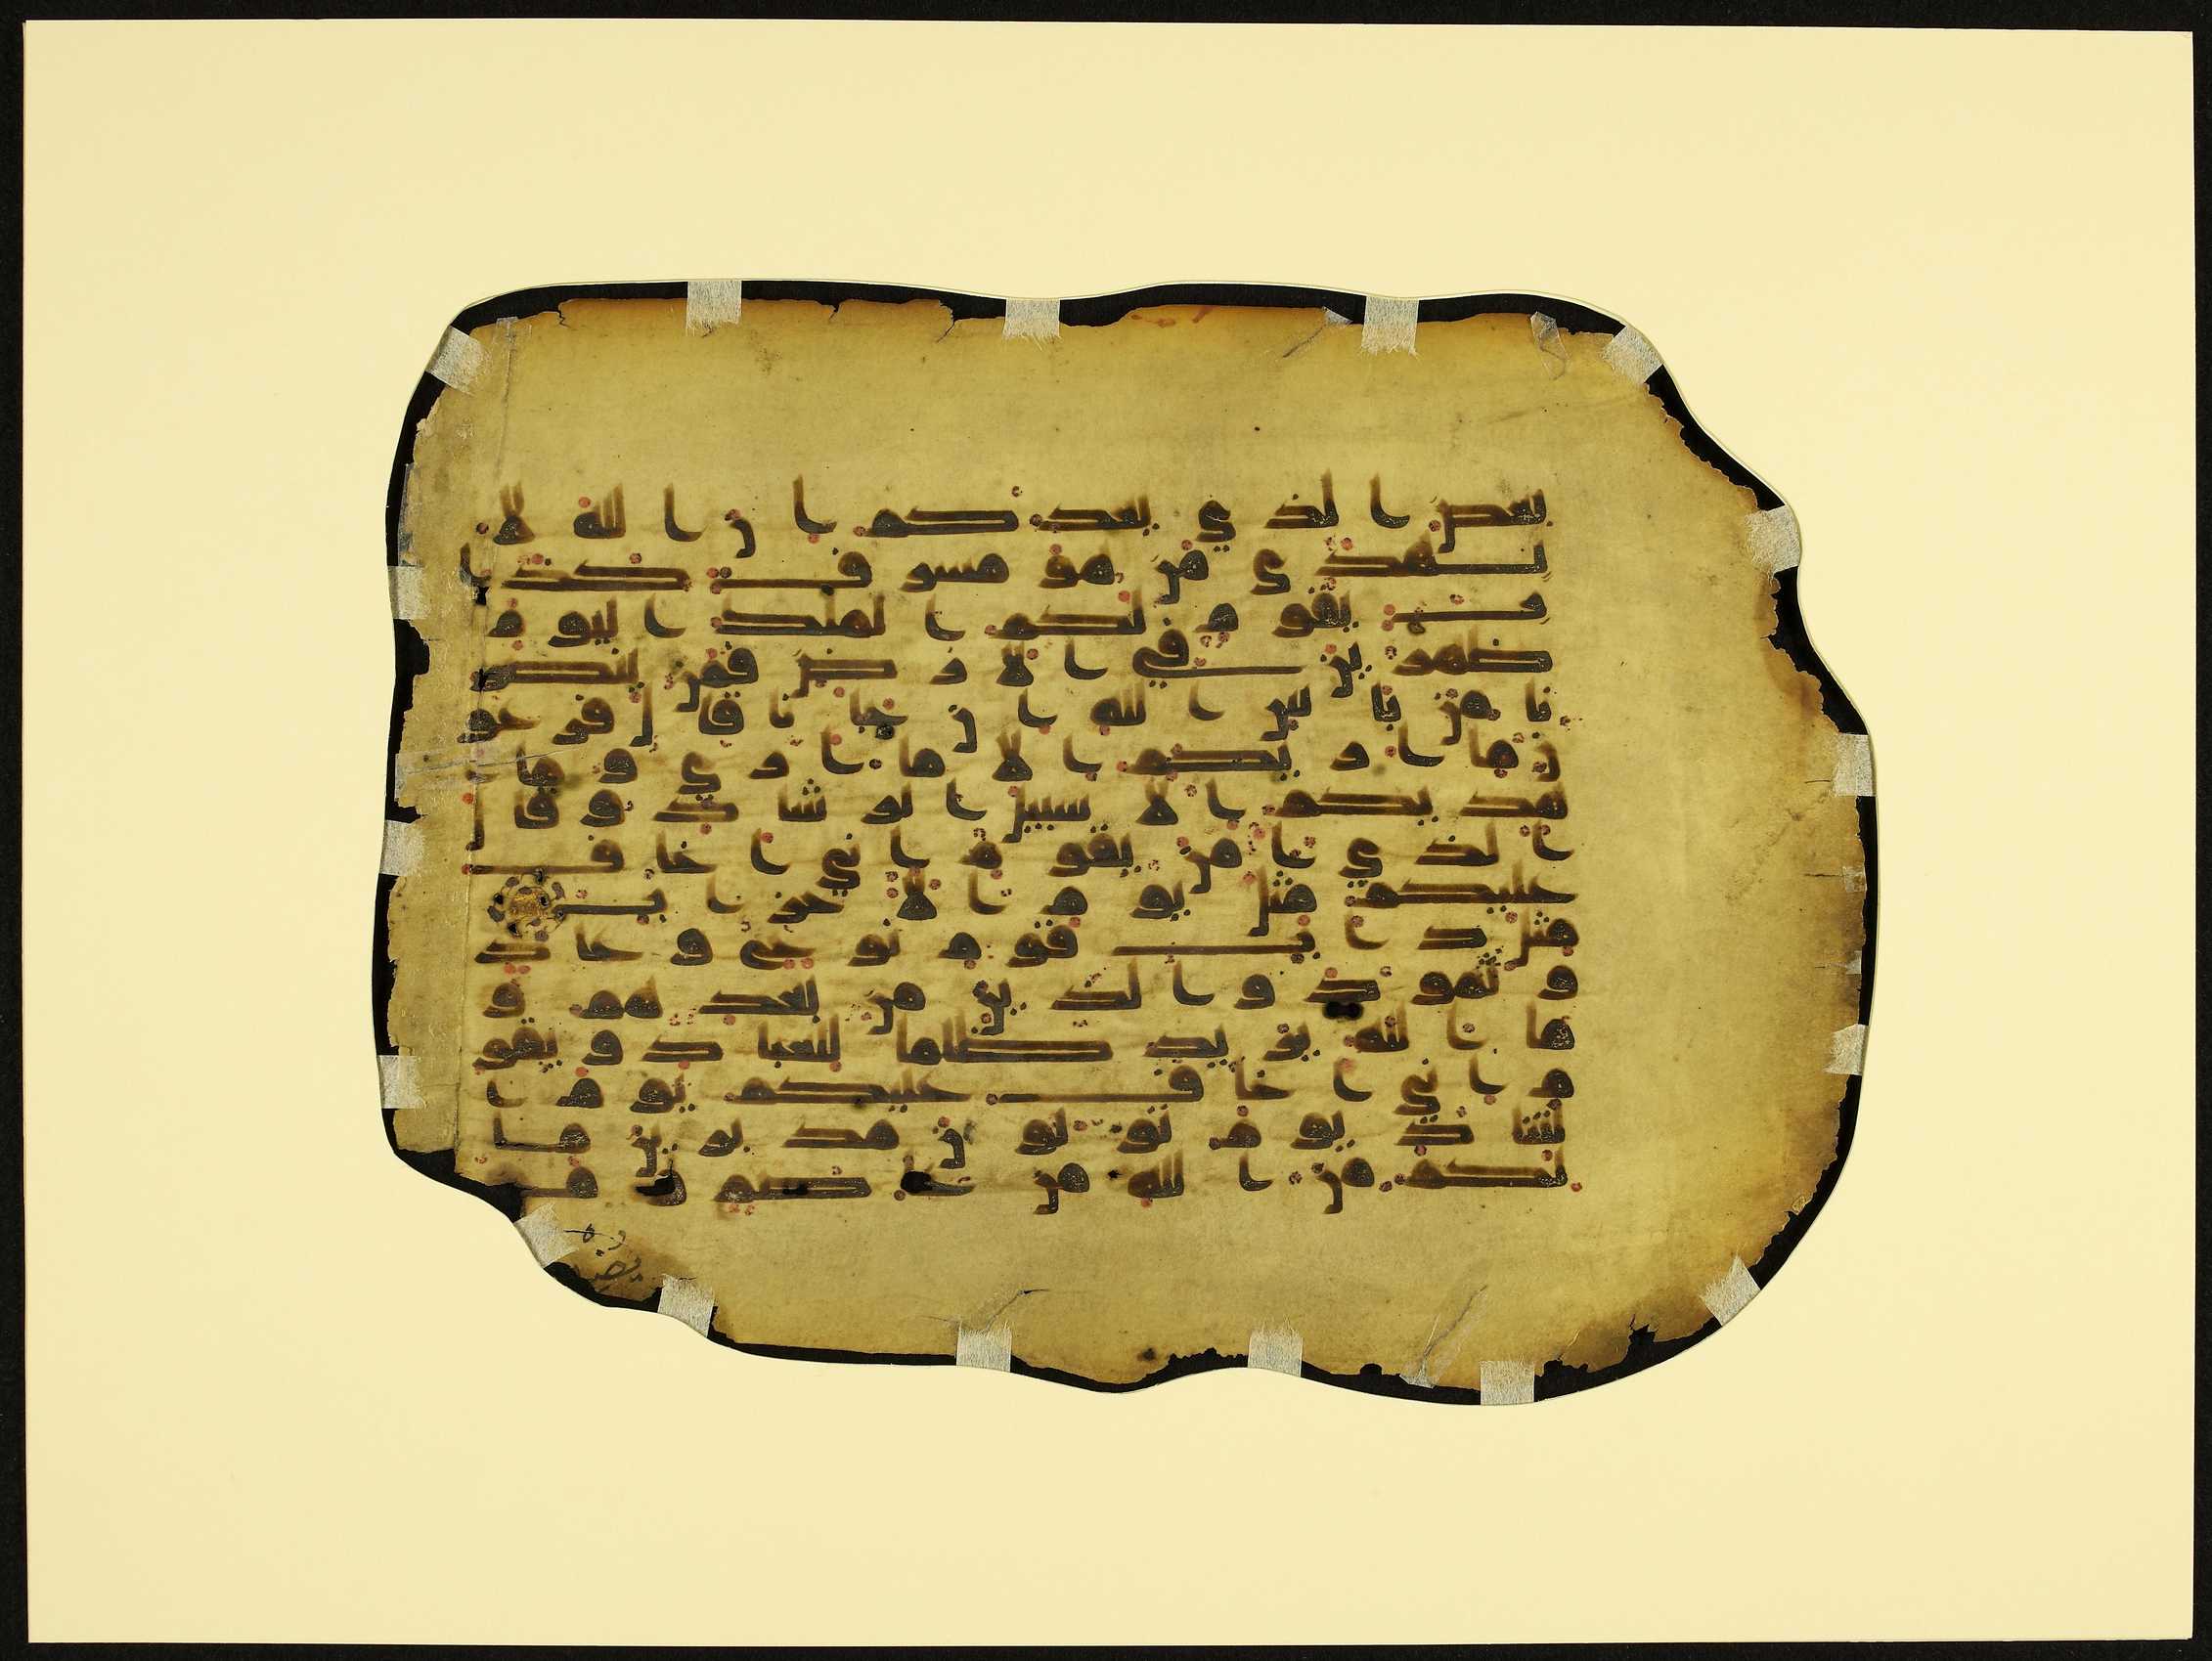 بعض الذي يعدكم ان الله لا
يهدي من هو مسرف كذا
ب يقوم لكم الملك اليوم
ظهرين في الارض فمن ينصر
نا من باس الله ان جانا قال فرعو
ن ما اريكم الا ما ارى وما ا
هديكم الا سبيل الرشاد وقال
الذي امن يقوم اني اخاف
عليكم مثل يوم الاحزاب
مثل داب قوم نوح وعاد
وثمود والذين من بعدهم و
ما الله يريد ظلما للعباد ويقو
م اني اخاف عليكم يوم ا
لتناد يوم تولون مدبرين ما
لكم من الله من